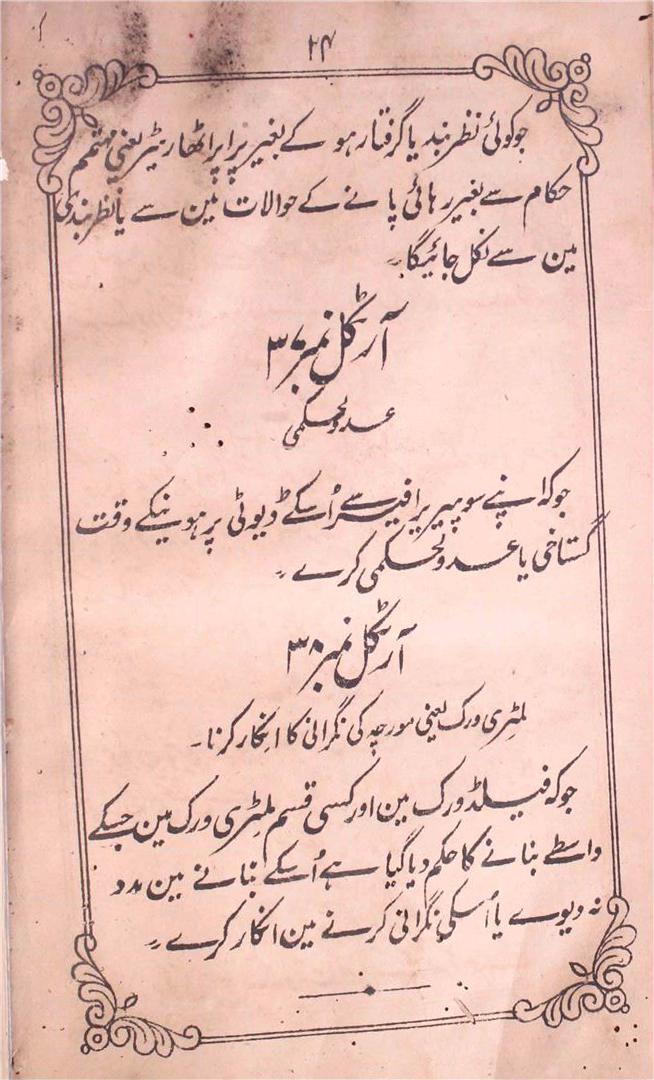 ۲۴
جو کوئی نظر بند یا گرفتار ہو کے بغیر پراپر اتھارٹیز یعنی مہتمم
حکام سے بغیر رہائی پانے کے حوالات مین سے یا نظر بندی
مین سے نکل جائیگا۔
آرٹکل نمبر ۳۷
عدولحکمی
جو کہ اپنے سوپیریر افیسر سے اُسکے ڈیوٹی پر ہونیکے وقت
گستاخی یا عدولحکمی کرے۔
آرٹکل نمبر ۳۸
ملٹری ورک یعنی مورچہ کی نگرانی کا انکار کرنا۔
جو کہ فیلڈ ورک مین اور کسی قسم ملٹری ورک مین جسکے
واسطے بنانے کا حکم دیا گیا ہے اُسکے بنانے مین مدد
نہ دیوے یا اُسکی نگرانی کرنے مین انکار کرے۔